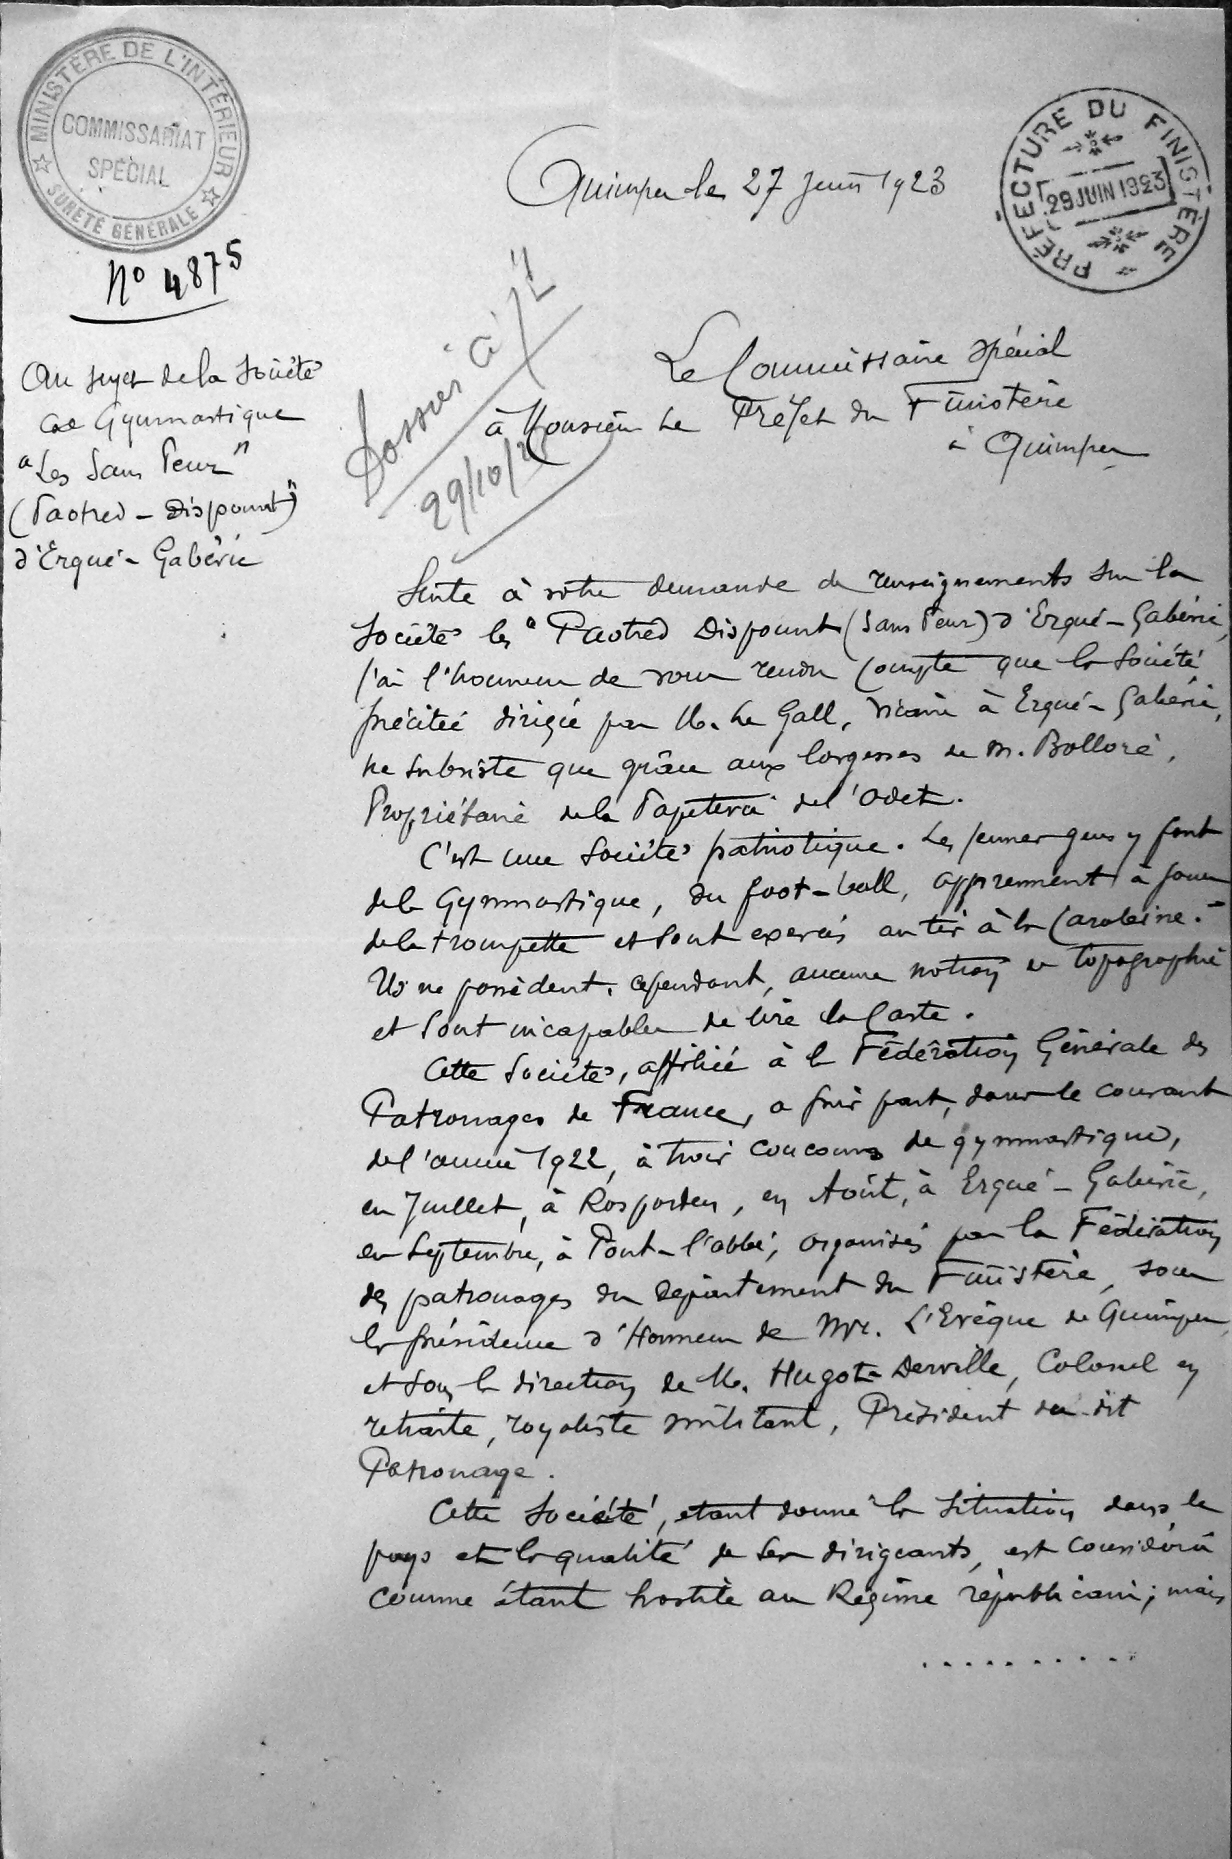 MINISTÈRE DE L'INTÉRIEUR
COMMISSARIAT
SPÉCIAL
SURETÉ GÉNÉRALE
PRÉFECTURE DU FINISTÈRE
29 JUIN 1923
Quimper le 27 Juin 1923
N° 4875
Au sujet de la Société
de Gymnastique
"Les Sans Peur"
(Paotred - Dispount")
d'Ergué - Gabéric
Dossier
29/10/
Le Commissaire Spécial
à Monsieur Le Préfet du Finistère
à Quimper
Suite à votre demande de renseignements sur la
Société les " Paotred Dispount (Sans Peur) d'Ergué - Gabéric,
j'ai l'honneur de vous rendre compte que la Société
précitée dirigée par M. Le Gall, vicaire à Ergué - Gabéric,
ne subsiste que grâce aux largesses de M. Bolloré,
Propriétaire de la Papeterie de l'Odet.
C'est une Société patriotique. Les jeunes gens y font
de la Gymnastique, du foot-ball, apprennent à jouer
de la trompette et sont exercés au tir à la Carabine.-
Ils ne possèdent, cependant, aucune notion de topographie
et sont incapables de lire la Carte.
Cette Société, affiliée à la Fédération Générale des
Patronages de France, a pris part, dans le courant
de l'année 1922, à trois concours de gymnastique,
en Juillet, à Rosporden, en Août, à Ergué - Gabéric,
en Septembre, à Pont-l'abbé, organisés par la Fédération
des patronages du département du Finistère, sous
la présidence d'Honneur de Mgr. L'Evêque de Quimper,
et sous la direction de M. Hugot-Derville, Colonel en
retraite, royaliste militant, Président du dit
Patronage.
Cette Société, étant donné la situation dans le
pays et la qualité de ses dirigeants, est considérée
comme étant hostile au Régime républicain; mais
..........